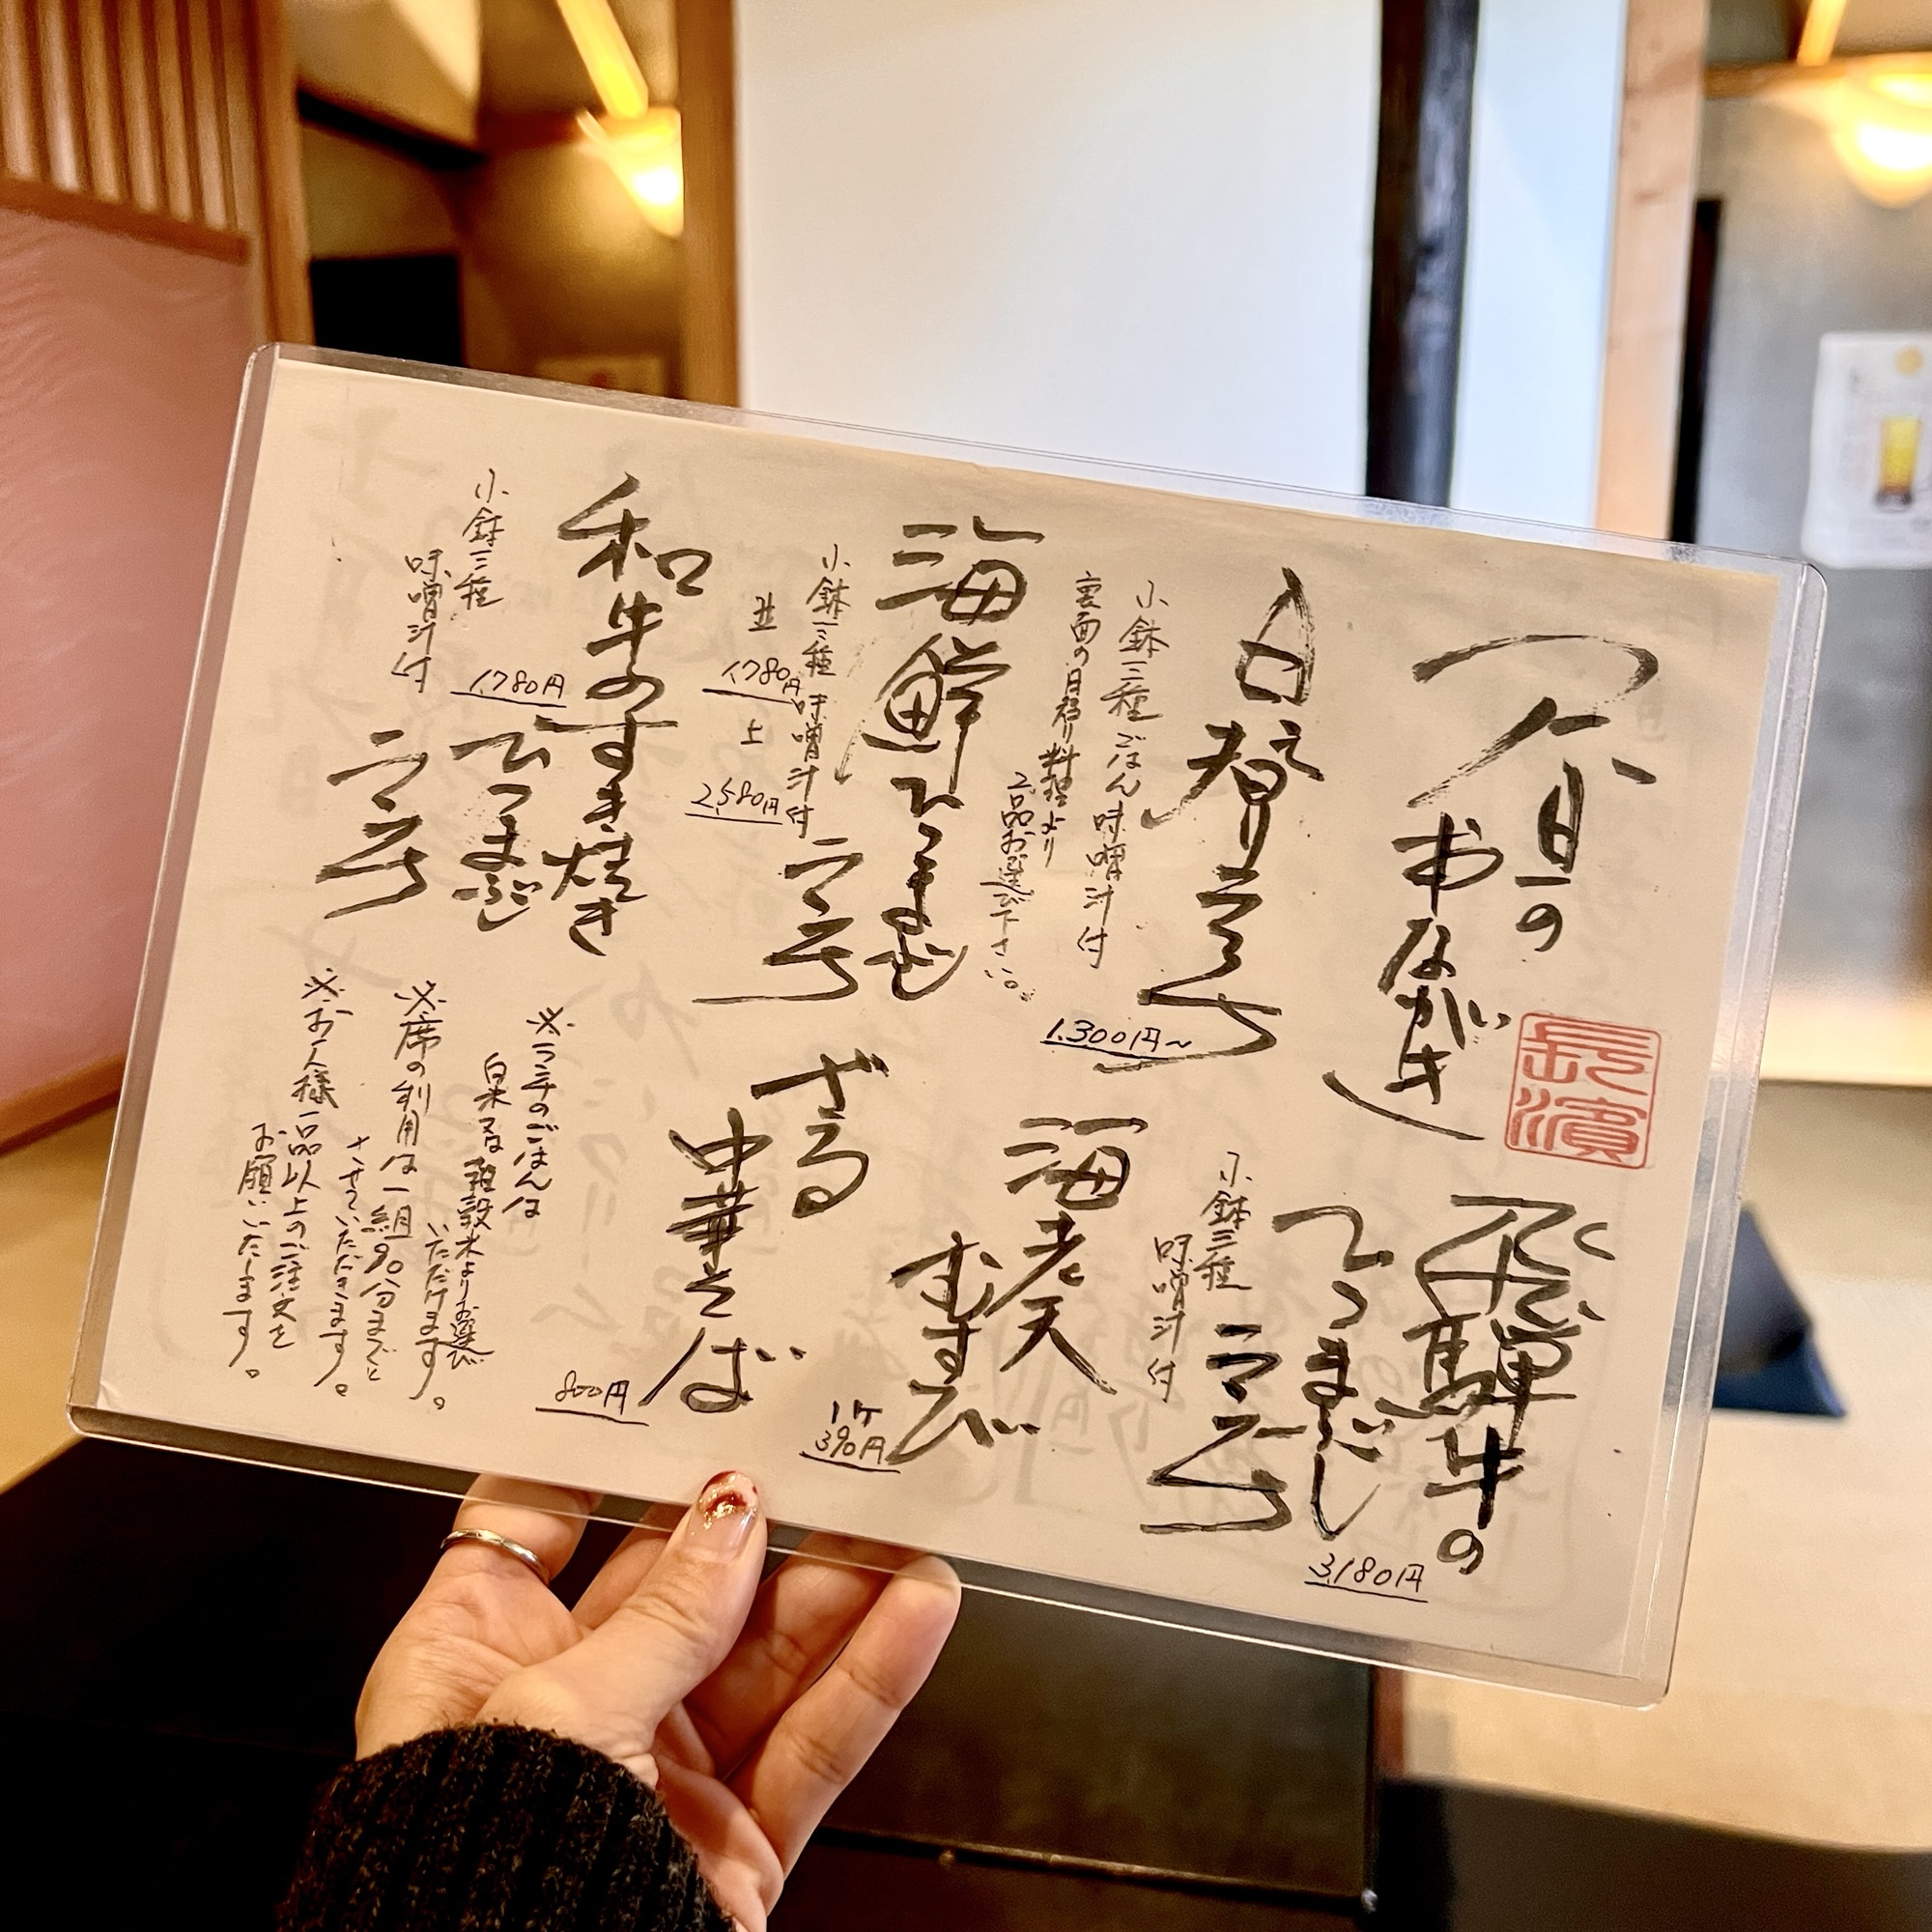 今日の
おながき
長濱
日替り
ランチ
小鉢三種 ごはん 味噌汁付
裏面の日替り料理より
2品お選び下さい。
1,300円~
海鮮ひつまぶし
ランチ
小鉢三種 味噌汁付
並 1,780円
上 2,580円
和牛のすき焼き
ひつまぶし
ランチ
小鉢三種
味噌汁付
1,780円
飛騨牛の
ひつまぶし
ランチ
小鉢三種
味噌汁付
3,180円
海老天
むすび
1ケ
390円
ざる
中華そば
800円
※ランチのごはんは
白米又は雑穀米よりお選び
いただけます。
※席の利用は一組90分までと
させていただきます。
※お一人様一品以上のご注文を
お願いいたします。